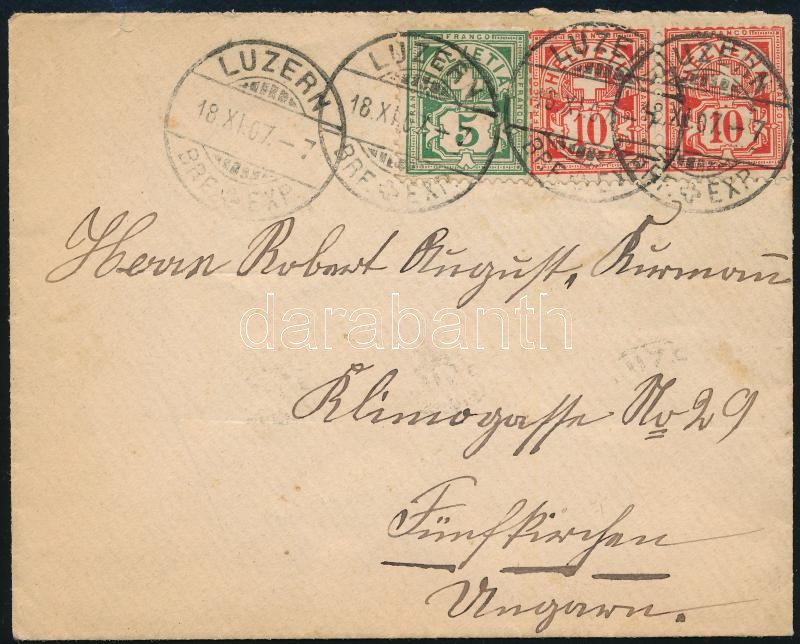 LUZERN
18.XI.07.-7
BRF. EXP.
LUZERN
18.XI.07.-7
BRF. EXP.
FRANCO
HELVETIA
5
LUZERN
FRANCO
10
LUZERN
18.XI.07.-7
BRF. EXP.
FRANCO
10
Herrn Robert August, Kurmann
darabanth
Klimogasse No 29
Fünfkirchen
Ungarn.